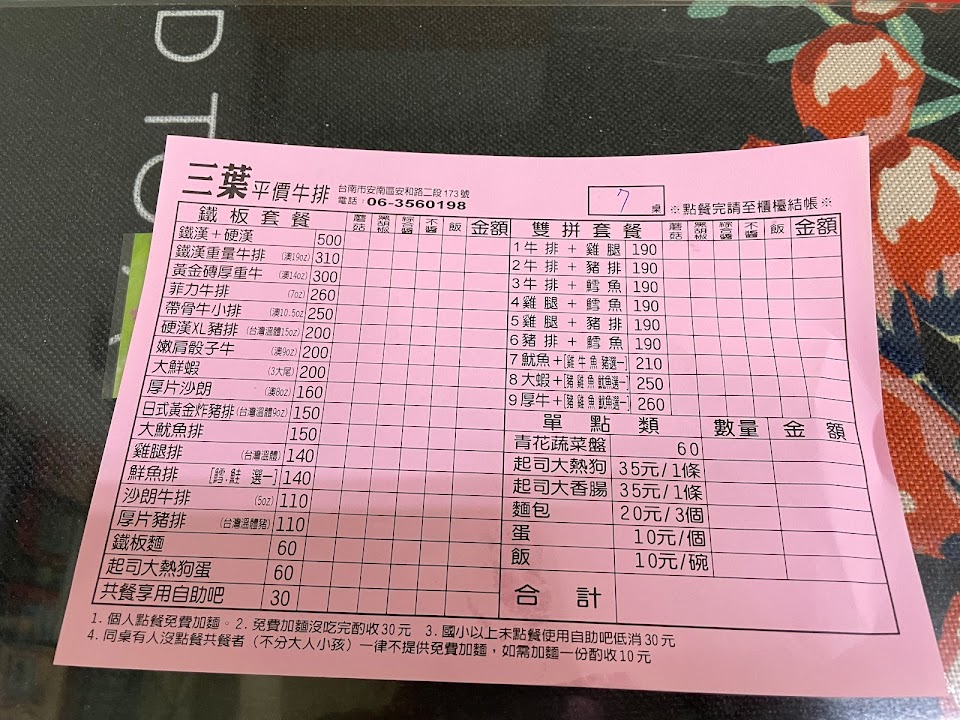 D TO
三葉平價牛排
台南市安南區安和路二段173號
電話：06-3560198
7 桌 ※點餐完請至櫃檯結帳※
鐵板套餐 蘑菇 黑胡椒 綜合醬 不醬 飯 金額
鐵漢＋硬漢 500
鐵漢重量牛排 (澳19oz) 310
黃金磚厚重牛 (澳14oz) 300
菲力牛排 (7oz) 260
帶骨牛小排 (澳10.5oz) 250
硬漢XL豬排 (台灣溫體15oz) 200
嫩肩骰子牛 (澳9oz) 200
大鮮蝦 (3大尾) 200
厚片沙朗 (澳8oz) 160
日式黃金炸豬排 (台灣溫體9oz) 150
大魷魚排 150
雞腿排 (台灣溫體) 140
鮮魚排 [鱈.鮭 選一] 140
沙朗牛排 (5oz) 110
厚片豬排 (台灣溫體豬) 110
鐵板麵 60
起司大熱狗蛋 60
共餐享用自助吧 30
雙拼套餐 蘑菇 黑胡椒 綜合醬 不醬 飯 金額
1牛排＋雞腿 190
2牛排＋豬排 190
3牛排＋鱈魚 190
4雞腿＋鱈魚 190
5雞腿＋豬排 190
6豬排＋鱈魚 190
7魷魚＋[雞牛魚豬選一] 210
8大蝦＋[豬雞魚魷魚選一] 250
9厚牛＋[豬雞魚魷魚選一] 260
單點類 數量 金額
青花蔬菜盤 60
起司大熱狗 35元/1條
起司大香腸 35元/1條
麵包 20元/3個
蛋 10元/個
飯 10元/碗
合計
1. 個人點餐免費加麵。2. 免費加麵沒吃完酌收30元 3. 國小以上未點餐使用自助吧低消30元
4. 同桌有人沒點餐共餐者（不分大人小孩）一律不提供免費加麵，如需加麵一份酌收10元